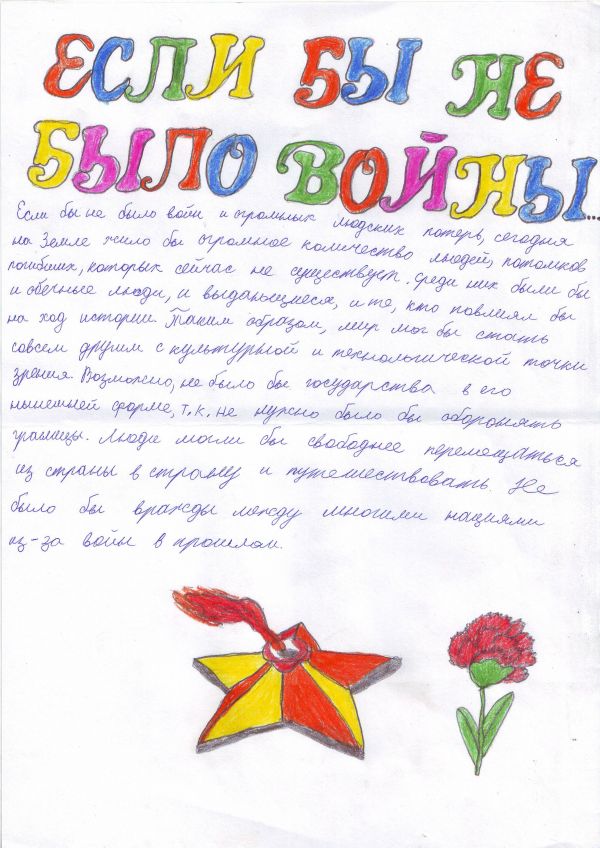 ЕСЛИ БЫ НЕ
БЫЛО ВОЙНЫ...
Если бы не было войн и огромных людских потерь, сегодня
на Земле жило бы огромное количество людей, потомков
погибших, которых сейчас не существует. Среди них были бы
и обычные люди, и выдающиеся, и те, кто повлиял бы
на ход истории. Таким образом, мир мог бы стать
совсем другим с культурной и технологической точки
зрения. Возможно, не было бы государства в его
нынешней форме, т.к. не нужно было бы оборонять
границы. Люди могли бы свободнее перемещаться
из страны в страну и путешествовать. Не
было бы вражды между многими нациями
из-за войн в прошлом.